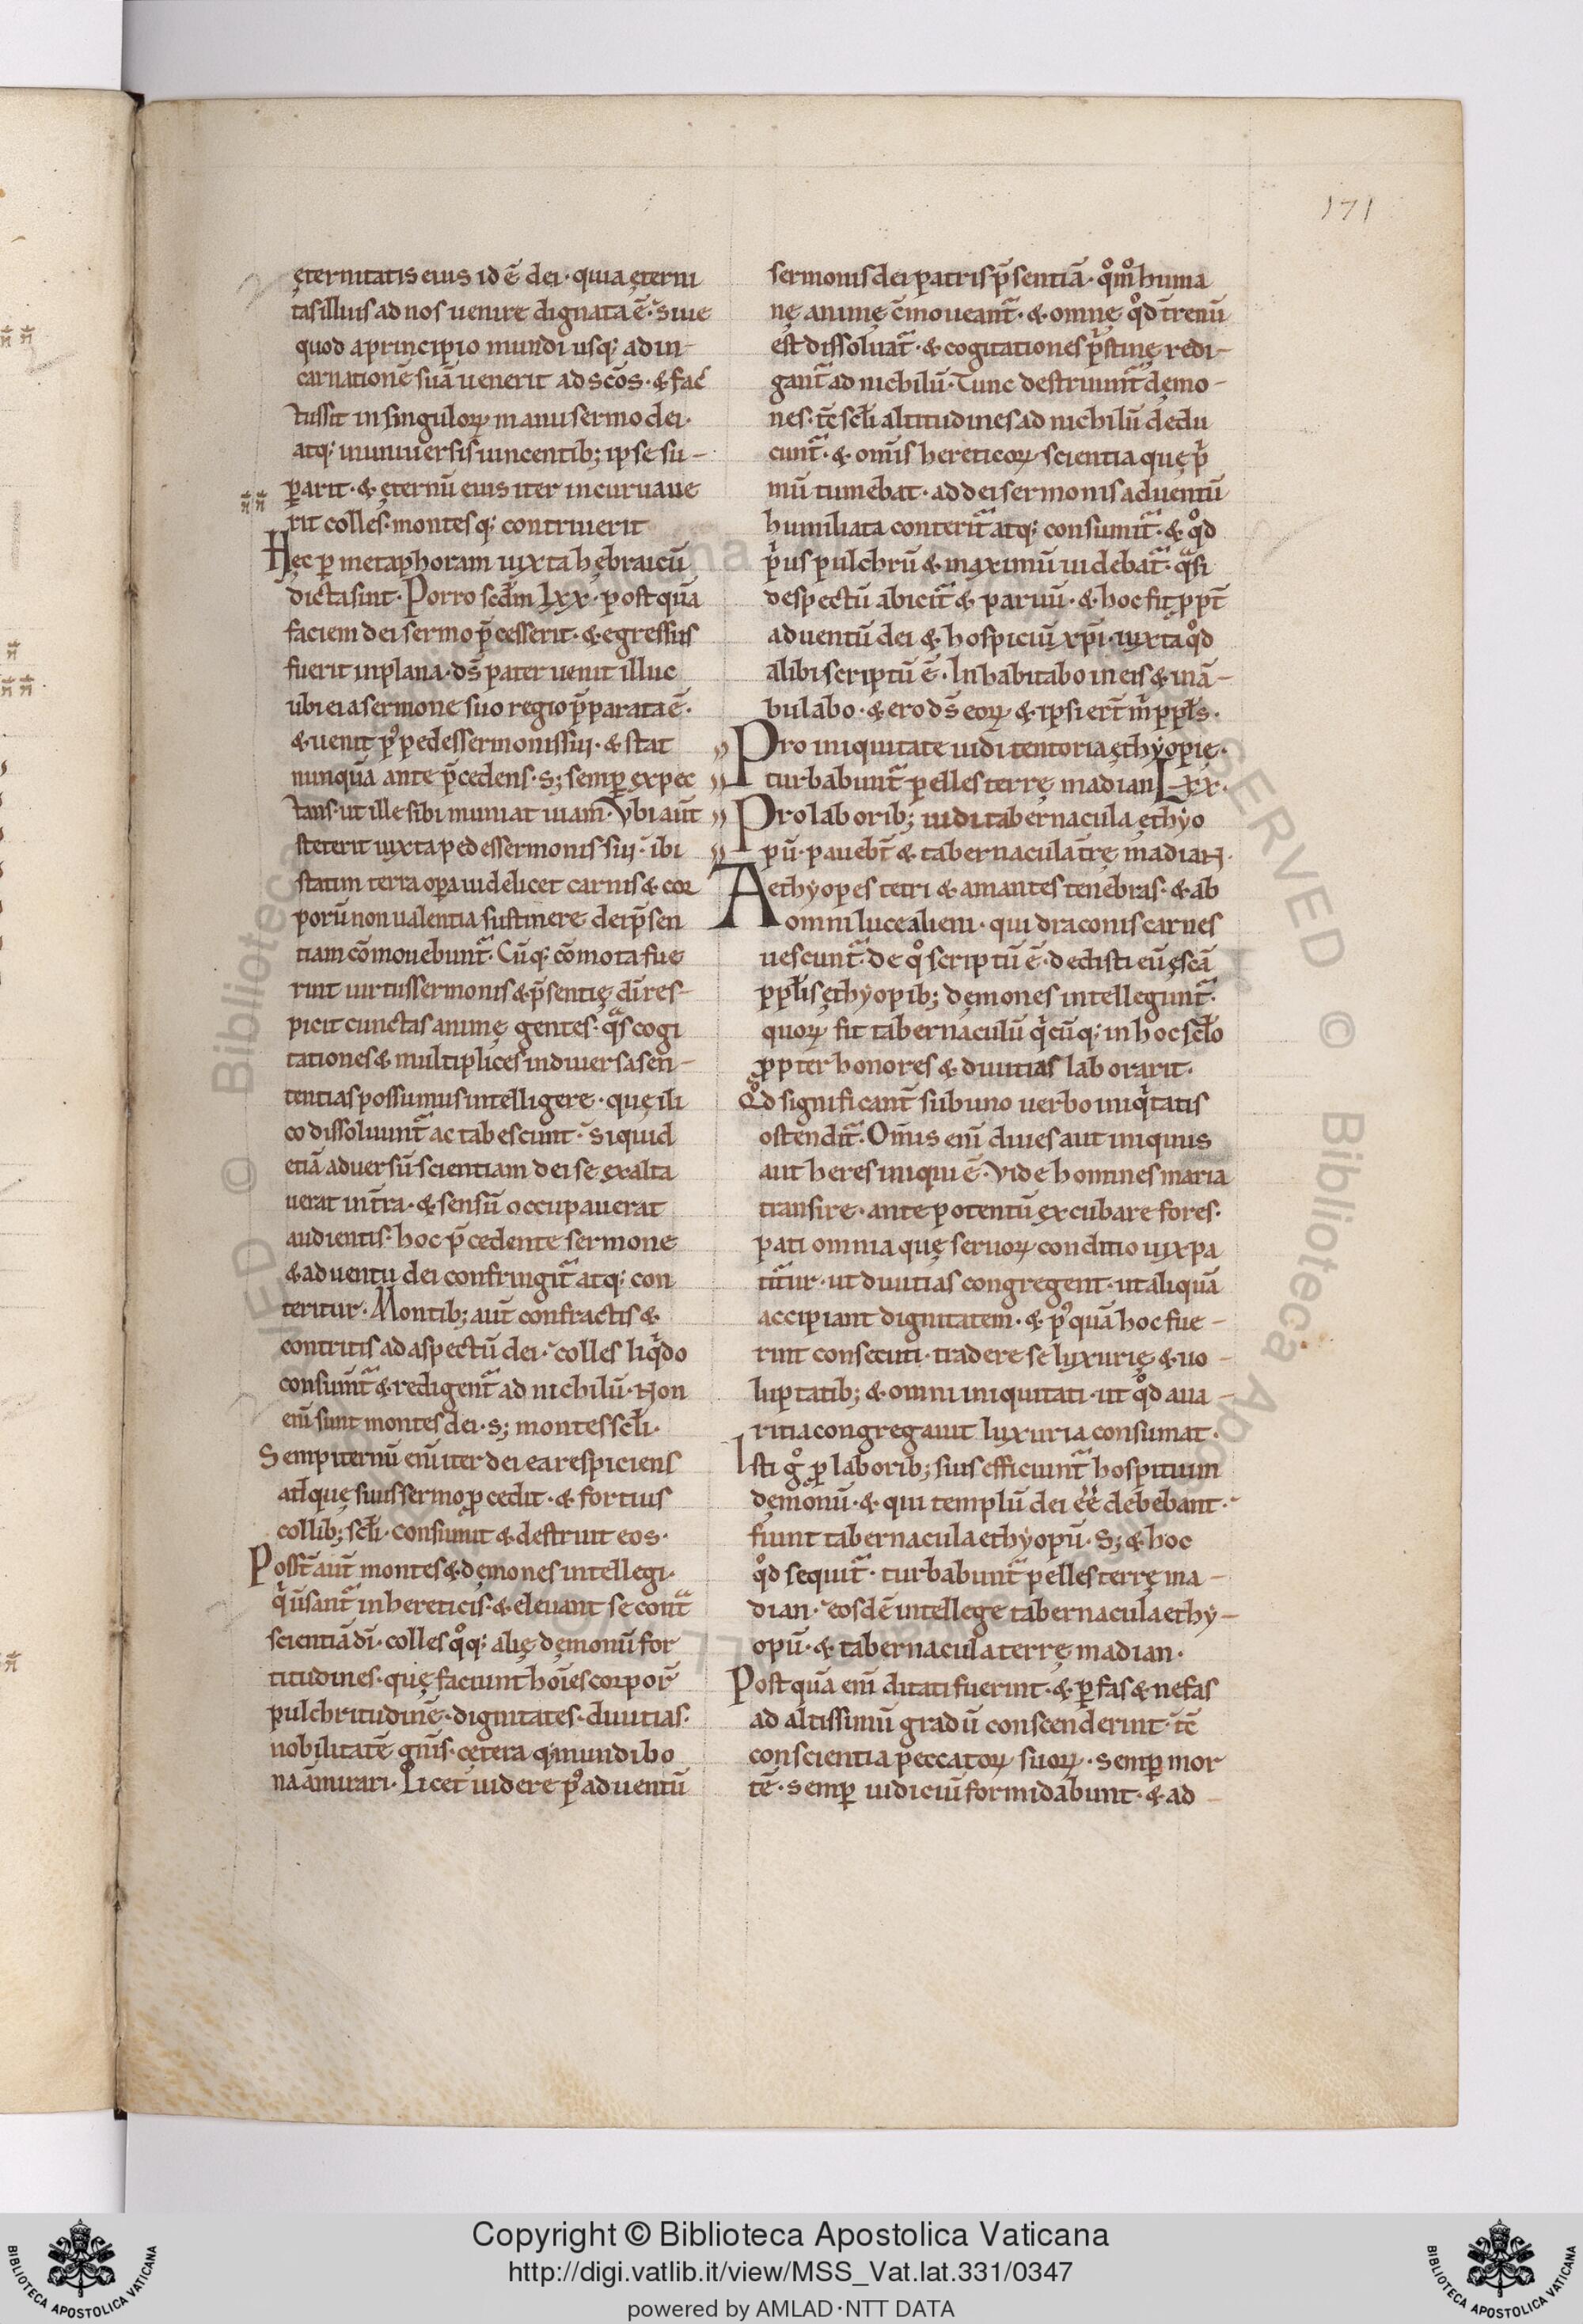 171
ęternitatis eius id ē dei· quia ęterni
tas illius ad nos uenire dignata ē· siue
quod a principio mundi usq; ad in-
carnationē suā uenerit ad scōs· & fac̄
tus sit in singuloꝝ manu sermo dei·
atq; in uniuersis uincentib; ipse su-
ꝑarit· & ęternū eius iter incuruaue
rit colles· montesq; contriuerit
Hęc ꝑ metaphoram iuxta hębraicū
dicta sint· Porro scdm̄ Lxx· postquā
faciem dei sermo p̄cesserit· & egressus
fuerit in plana· ds̄ pater uenit illuc
ubi ei a sermone suo regio p̄parata ē·
& uenit pꝰ pedes sermonis sui· & stat
nunquā ante p̄cedens· s; semꝑ expec
tans· ut ille sibi muniat uiam· Vbi aūt
steterit iuxta pedes sermonis sui· ibi
statim terra oꝑa uidelicet carnis & cor
porū non ualentia sustinere dei p̄sen
tiam cōmouebunt᷑· Cūq; cōmota fue
rint uirtus sermonis & p̄sentię dī res-
picit cunctas animę gentes· qͣs cogi
tationes & multiplices in diuersa sen-
tentias possumus intelligere· quę ili
co dissoluunt᷑ ac tabescunt· Siquid
etiā aduersū scientiam dei se exalta
uerat in t̄ra· & sensū occupauerat
audientis· hoc p̄cedente sermone
& aduentu dei confringit᷑ atq; con
teritur· Montib; aūt confractis &
contritis ad aspectū dei· colles liqͥdo
consumt᷑ & redigent᷑ ad nichilū· Non
enī sunt montes dei· s; montes scłi·
Sempiternū enī iter dei ea respiciens
adq; quę suus sermo ꝓcedit· & fortius
collib; scłi· consumit & destruit eos·
Posst̄ aūt montes & dęmones intellegi·
qͥ uersant᷑ in hereticis· & eleuant se cont͛
scientiā dī· colles qͦq; alię dęmonū for
titudines· quę faciunt hoīes corpor̄
pulchritudinē· dignitates· diuitias·
nobilitatē gn̄is· cetera q; mundi bo
na āmirari· Licet uidere pꝰ aduentū
sermonis dei patris p̄sentiā· qͦmͦ huma
nę animę cm̄oueant᷑· & omnę qͦd t̄renū
est dissoluat᷑· & cogitationes pͥstinę redi-
gant᷑ ad nichilū· Tunc destruunt᷑ dęmo-
nes· tc̄ scłi altitudines ad nichilū dedu
cunt᷑· & om̄is hereticoꝝ scientia quę pͥ
mū tumebat· ad dei sermonis aduentū
humiliata conterit᷑ atq; consumit᷑· & qͦd
pͥus pulchrū & maximū uidebat᷑· qͣsi
despectū abicit᷑ & paruū· & hoc fit ꝓpt̄
aduentū dei & hospiciū xp̄i· iuxta qͦd
alibi scriptū ē· Inhabitabo in eis & inā-
bulabo· & ero ds̄ eoꝝ & ipsi ert̄ m̄ ppłs·
Pro iniquitate uidi tentoria ęthyopię·
turbabunt᷑ pelles terrę madian Lxx·
Pro laborib; uidi tabernacula ęthyo
pū· pauebt̄ & tabernacula t̄rę madian·
Aethyopes tetri & amantes tenebras· & ab
omni luce alieni· qui draconis carnes
uescunt᷑· de qͦ scriptū ē· dedisti eū ęscā
ppłis ęthyopib; dęmones intellegunt᷑·
quoꝝ fit tabernaculū qͥcūq; in hoc scło
ꝓpter honores & diuitias laborarit·
Qͦd significant̄ sub uno uerbo iniqͥtatis
ostendit᷑· Om̄is enī diues aut iniquus
aut heres iniqui ē· Vide homines maria
transire· ante potentū excubare fores·
pati omnia quę seruoꝝ conditio uix pa
titur· ut diuitias congregent· ut aliquā
accipiant dignitatem· & pꝰquā hoc fue-
rint consecuti· tradere se luxurię & uo-
luptatib; & omni iniquitati· ut qͦd aua-
ritia congregauit luxuria consumat·
Isti gͦ ꝓ laborib; suis efficiunt᷑ hospitium
dęmonū· & qui templū dei ēē debebant·
fiunt tabernacula ethyopū· S; & hoc
qͦd sequit᷑· turbabunt᷑ pelles terrę ma-
dian· eosdē intellege tabernacula ethy-
opū· & tabernacula terrę madian·
Postquā enī ditati fuerint· & ꝑ fas & nefas
ad altissimū gradū conscenderint· tc̄
conscientia peccatoꝝ suoꝝ· semꝑ mor
tē· semꝑ iudiciū formidabunt· & ad-
Copyright © Biblioteca Apostolica Vaticana
http://digi.vatlib.it/view/MSS_Vat.lat.331/0347
powered by AMLAD·NTT DATA
BIBLIOTECA APOSTOLICA VATICANA
BIBLIOTECA APOSTOLICA VATICANA